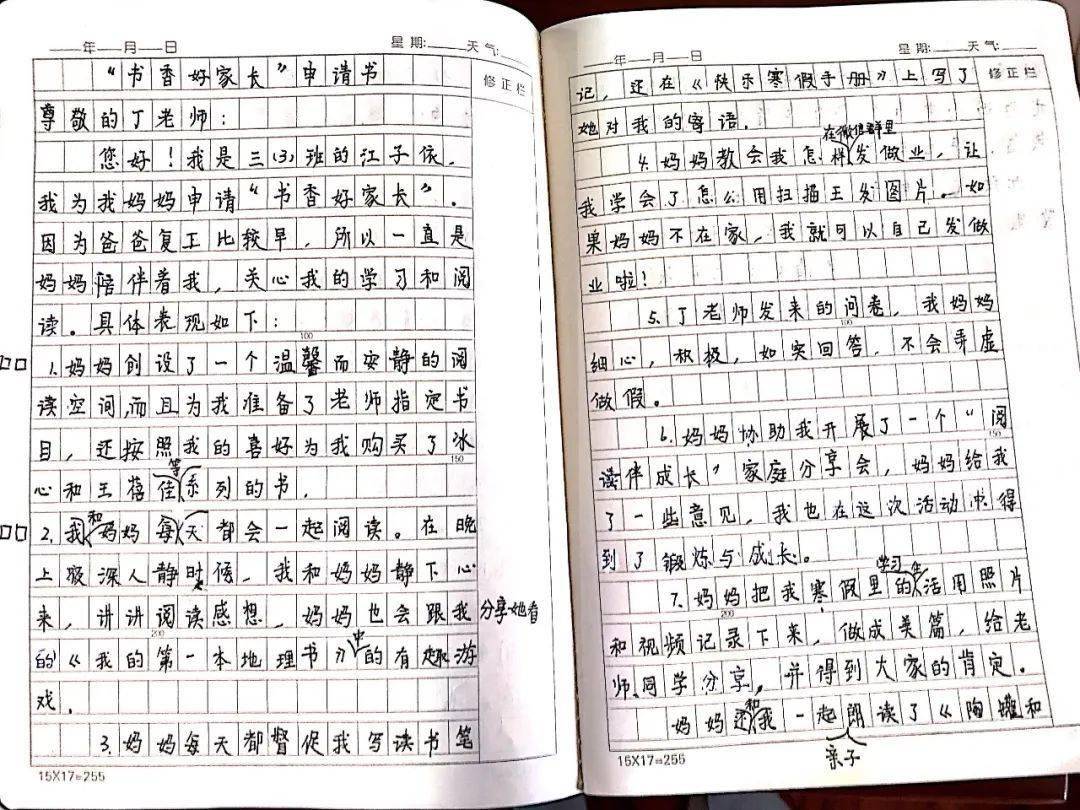 ——年—月—日 星期:____天气:____
“书香好家长”申请书
修正栏
尊敬的丁老师:
您好!我是三(3)班的江子依,
我为我妈妈申请“书香好家长”。
因为爸爸复工比较早,所以一直是
妈妈陪伴着我,关心我的学习和阅
读。具体表现如下:
100
1.妈妈创设了一个温馨而安静的阅
读空间,而且为我准备了老师指定书
目,还按照我的喜好为我购买了冰
150
心和王蓓佳等系列的书.
2.我和妈妈每天都会一起阅读。在晚
上夜深人静时候,我和妈妈静下心
来,讲讲阅读感想,妈妈也会跟我分享她看
200
的《我的第一本地理书》中的有趣游
戏.
3.妈妈每天都督促我写读书笔
15X17=255
——年—月—日 星期:____天气:____
修正栏
记,还在《快乐寒假手册》上写了
她对我的寄语.
4.妈妈教会我怎样在微信群里发做业,让
我学会了怎么用扫描王发图片。如
果妈妈不在家,我就可以自己发做
业啦!
5.丁老师发来的问卷,我妈妈
100
细心,积极,如实回答,不会弄虚
做假。
6.妈妈协助我开展了一个“阅
150
读伴成长”家庭分享会,妈妈给我
了一些意见,我也在这次活动中得
到了锻炼与成长。
7.妈妈把我寒假里的学习生活用照片
200
和视频记录下来,做成美篇,给老
师、同学分享,并得到大家的肯定。
妈妈还和我一起亲子朗读了《陶罐和
15X17=255